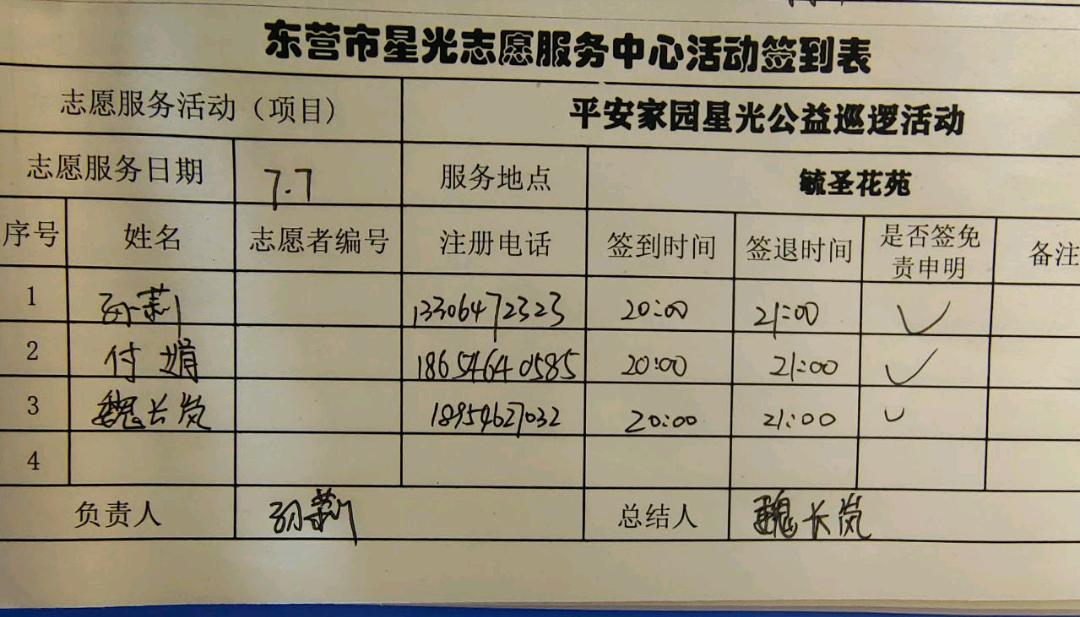 东营市星光志愿服务中心活动签到表
志愿服务活动（项目） 平安家园星光公益巡逻活动
志愿服务日期 7.7 服务地点 毓圣花苑
序号 姓名 志愿者编号 注册电话 签到时间 签退时间 是否签免责申明 备注
1 孙莉 13306472323 20:00 21:00 ✓
2 付娟 18654640585 20:00 21:00 ✓
3 魏长岚 18954627032 20:00 21:00 ✓
4
负责人 孙莉 总结人 魏长岚